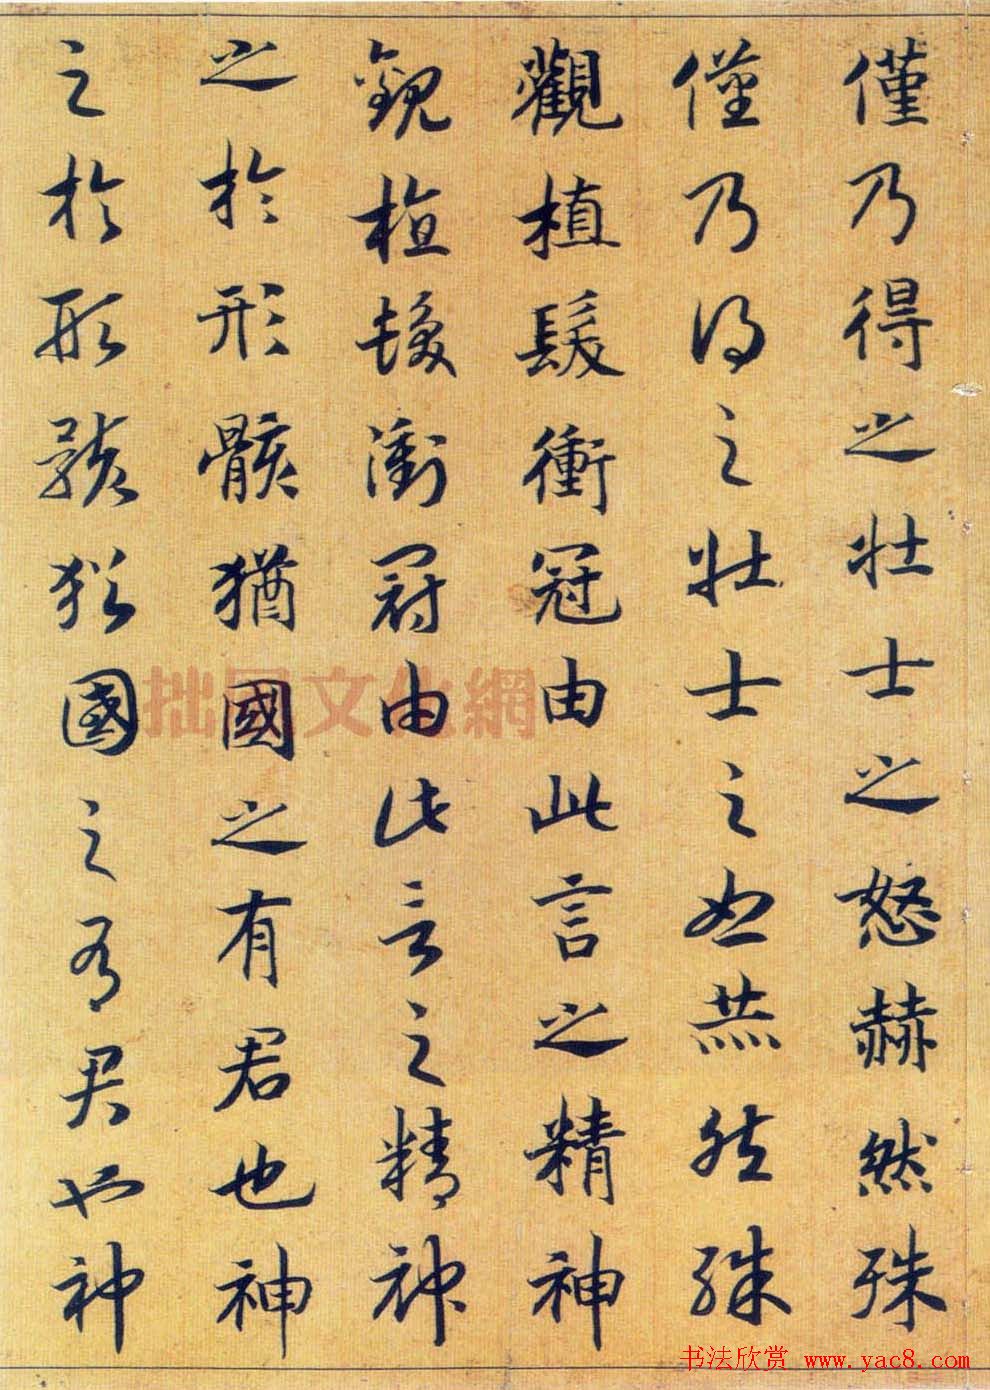 僅乃得之壯士之怒赫然殊
僅乃得之壯士之怒赫然殊
觀植髮衝冠由此言之精神
觀植髮衝冠由此言之精神
之於形骸猶國之有君也神
之於形骸猶國之有君也神
拙風文化網
书法欣赏 www.yac8.com